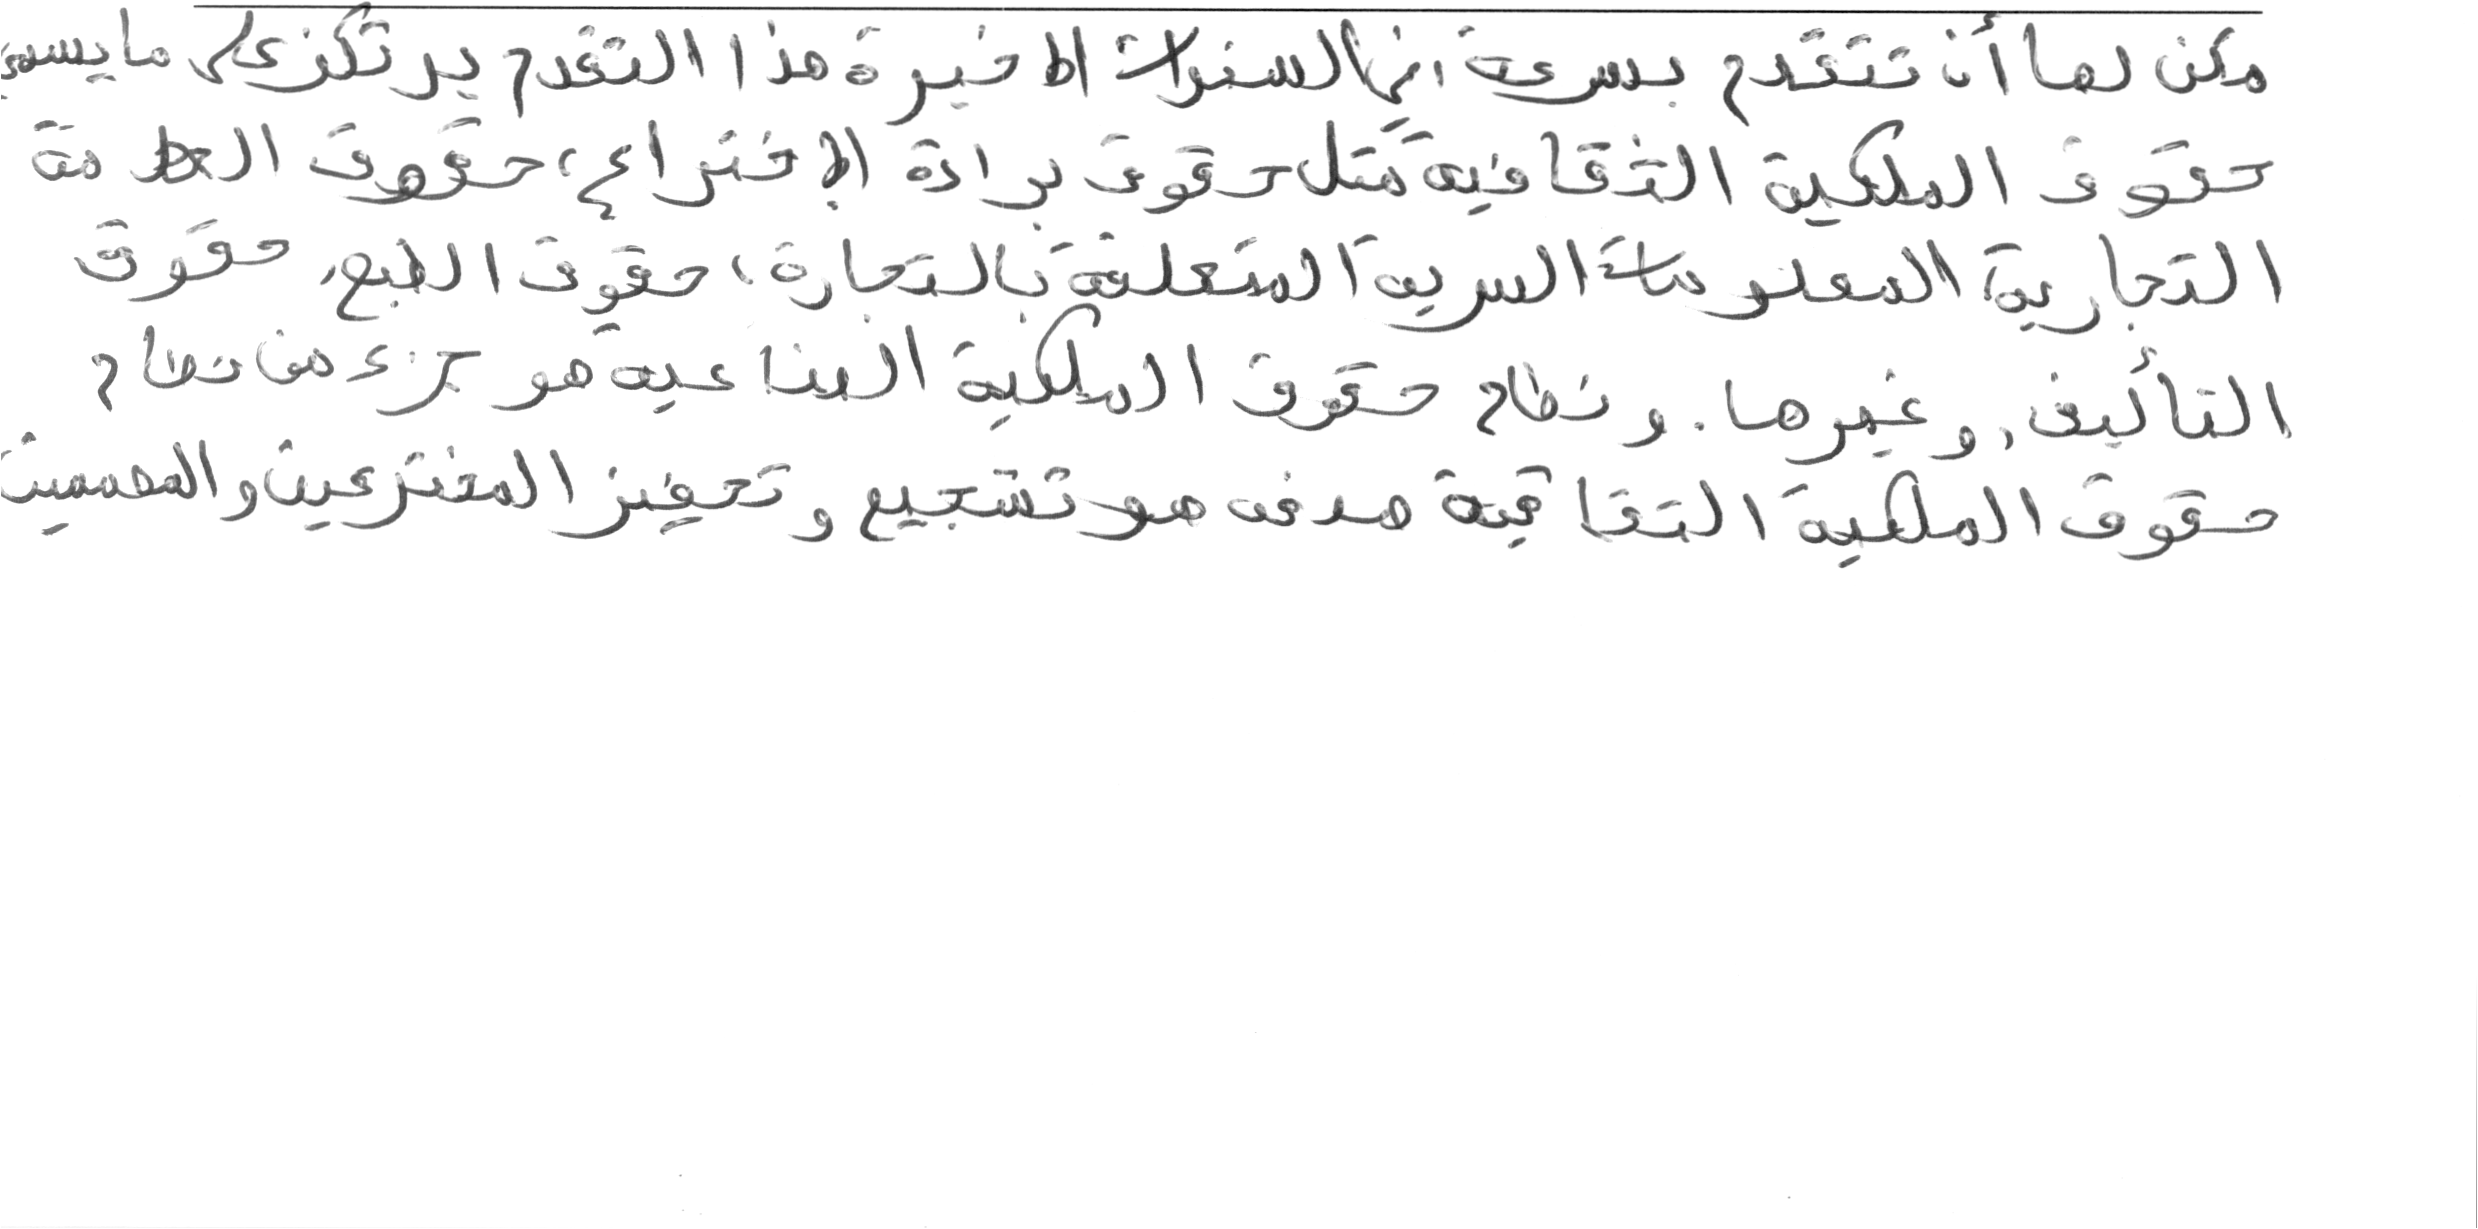 مكن لها أن تتقدم بسرعة في السنوات الاخيرة هذا التقدم يرتكز على ما يسمى
حقوق الملكية الثقافية مثل حقوق براءة الإختراع، حقوق العلامة
التجارية، المعلومات السرية المتعلقة بالتجارة، حقوق الطبع، حقوق
التأليف، وغيرها. ونظام حقوق الملكية الصناعية هو جزء من نظام
حقوق الملكية الثقافية هدفه هو تشجيع وتحفيز المخترعين والمصممين